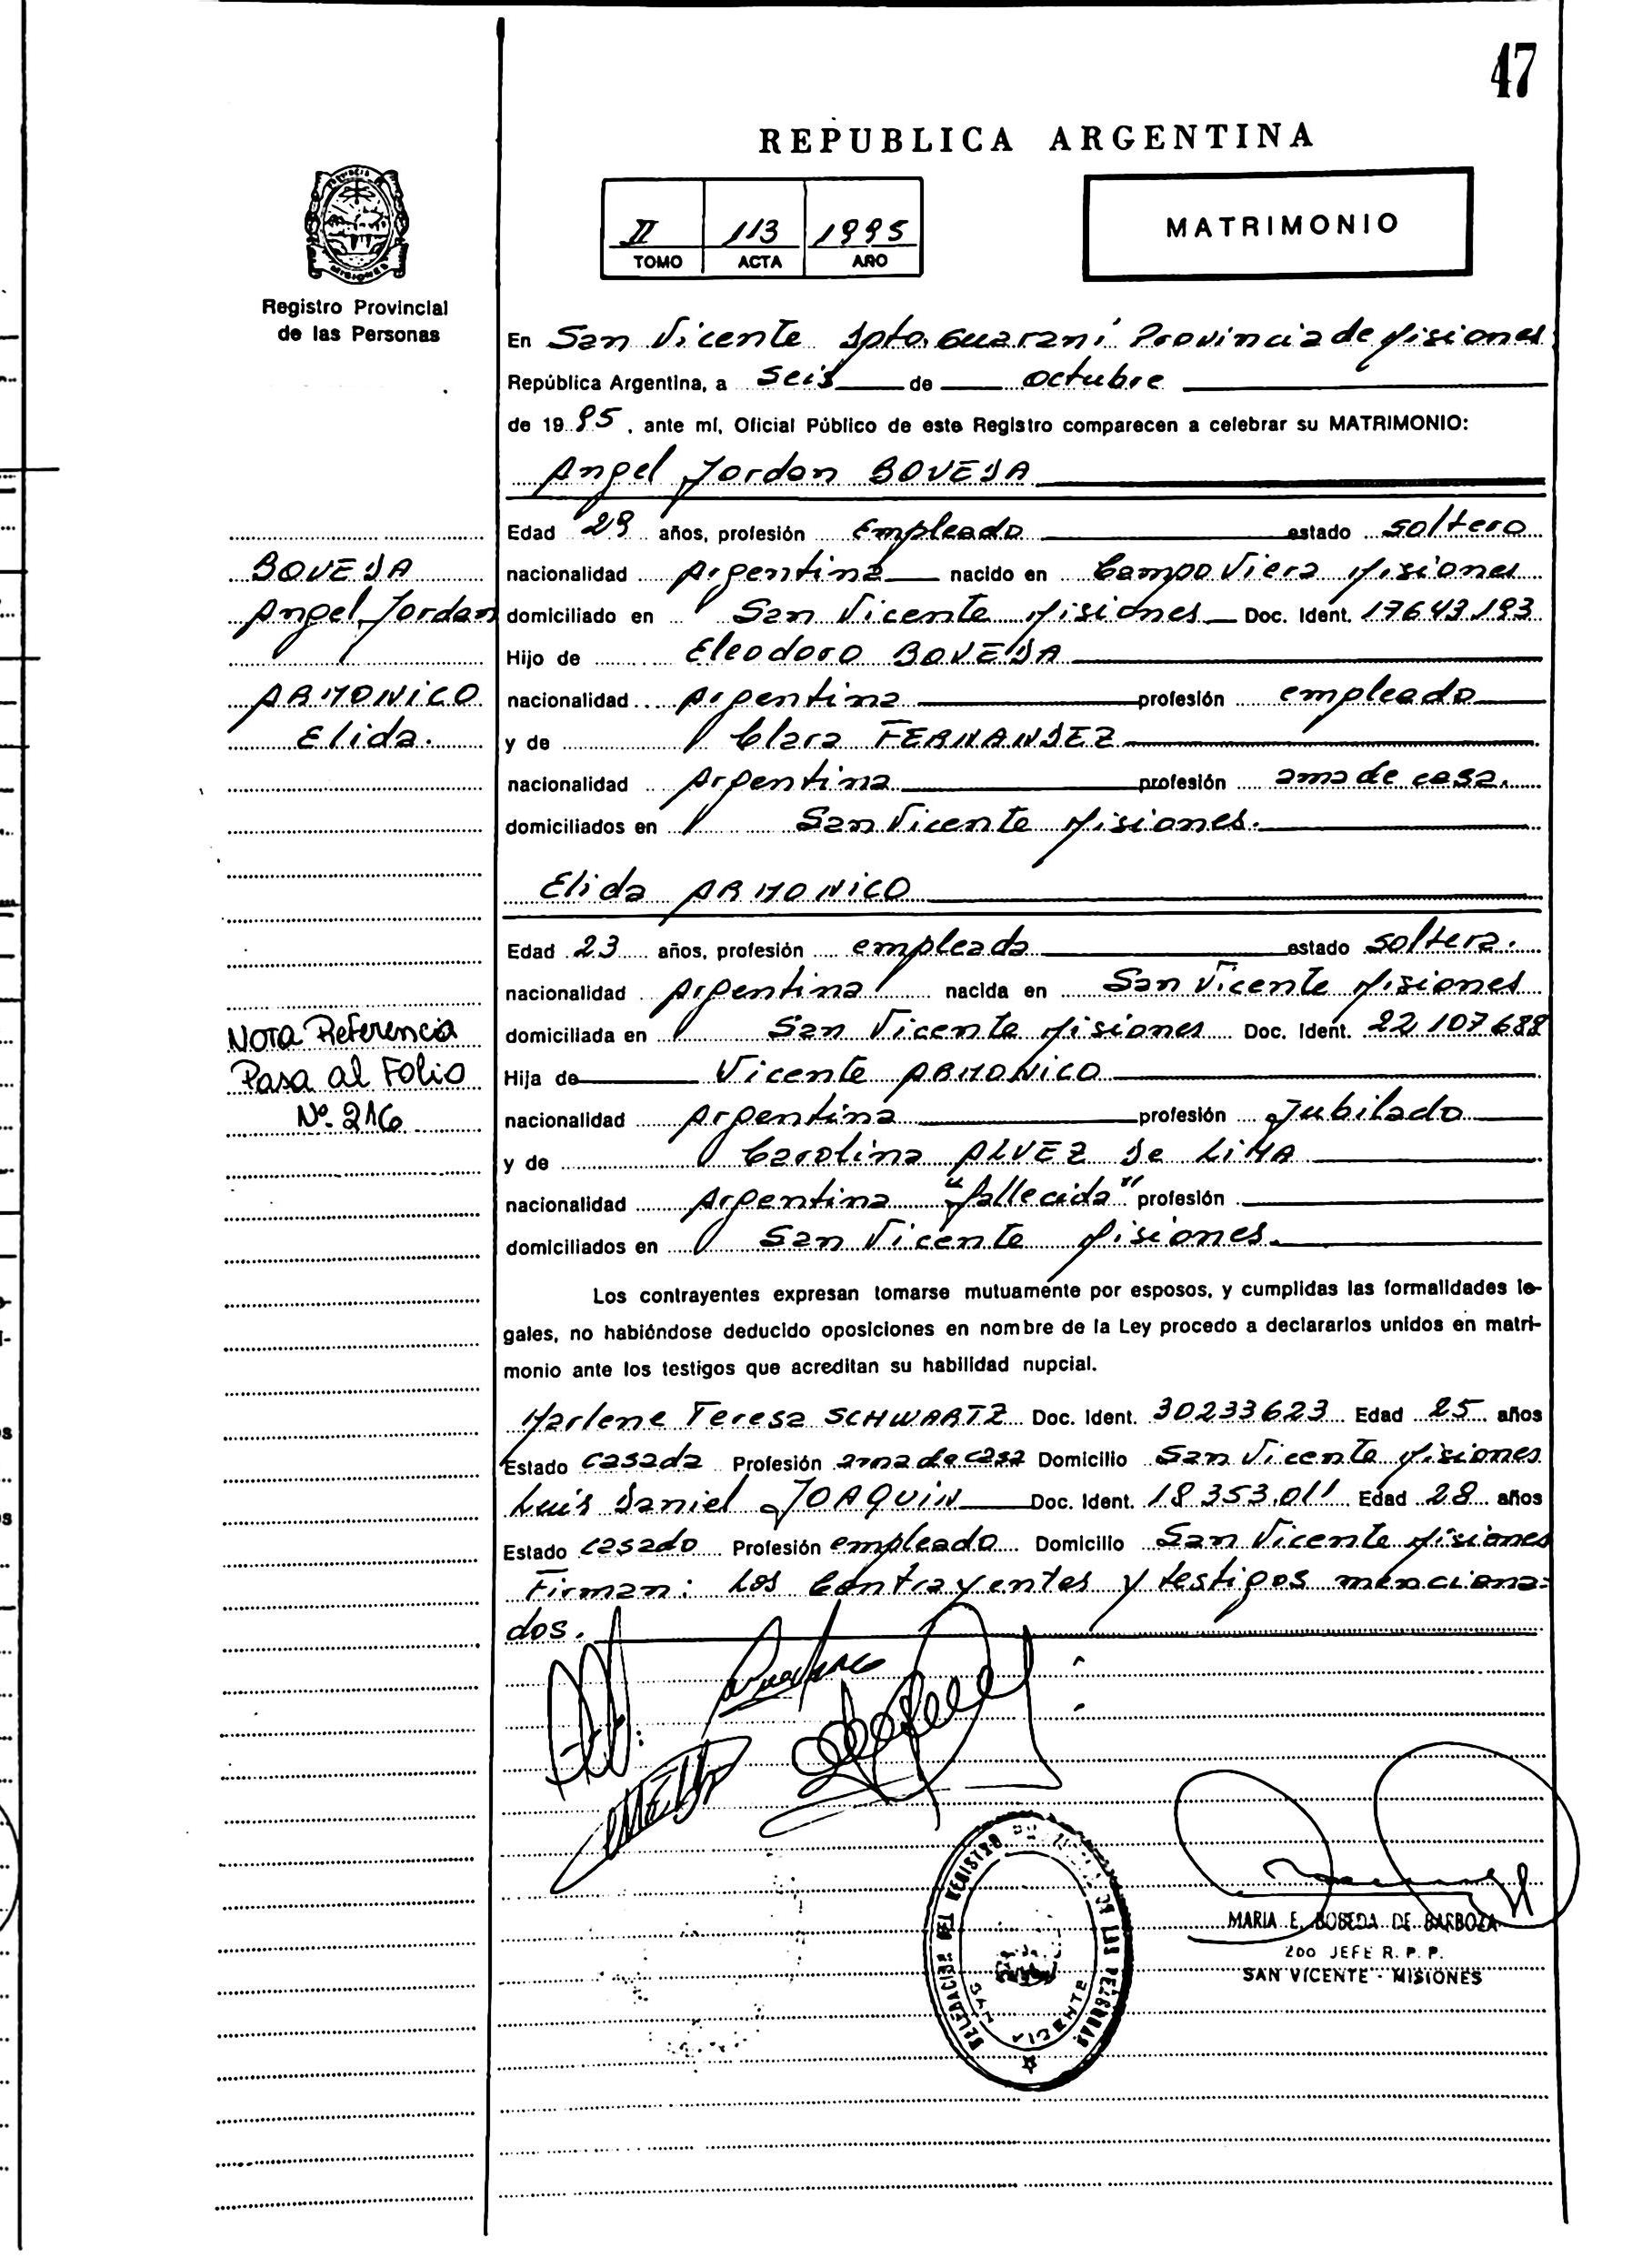 47
REPUBLICA ARGENTINA
II 113 1995
TOMO ACTA AÑO
MATRIMONIO
Registro Provincial
de las Personas
En San Vicente Dpto. Guaraní Provincia de Misiones
República Argentina, a seis de octubre
de 1995, ante mí, Oficial Público de este Registro comparecen a celebrar su MATRIMONIO:
Angel Jordan BOVEDA
Edad 29 años, profesión Empleado estado soltero
nacionalidad Argentina nacido en Campo Viera Misiones
domiciliado en San Vicente Misiones Doc. Ident. 17643.193
Hijo de Eleodoro BOVEDA
nacionalidad Argentina profesión empleado
y de Clara FERNANDEZ
nacionalidad Argentina profesión ama de casa.
domiciliados en San Vicente Misiones.
BOVEDA
Angel Jordan
ARMONICO
Elida.
Elida ARMONICO
Edad 23 años, profesión empleada estado soltera.
nacionalidad Argentina nacida en San Vicente Misiones
domiciliada en San Vicente Misiones Doc. Ident. 22.107688
Hija de Vicente ARMONICO
nacionalidad Argentina profesión Jubilado
y de Carolina ALVEZ De LIMA
nacionalidad Argentina "fallecida" profesión
domiciliados en San Vicente Misiones.
NOTA Referencia
Pasa al Folio
Nº 216
Los contrayentes expresan tomarse mutuamente por esposos, y cumplidas las formalidades le-
gales, no habiéndose deducido oposiciones en nombre de la Ley procedo a declararlos unidos en matri-
monio ante los testigos que acreditan su habilidad nupcial.
Marlene Teresa SCHWARTZ Doc. Ident. 30233623 Edad 25 años
Estado casada Profesión ama de casa Domicilio San Vicente Misiones
Luis Daniel JOAQUIN Doc. Ident. 18.353.011 Edad 28 años
Estado casado Profesión empleado Domicilio San Vicente Misiones
Firman: Los Contrayentes y testigos menciona-
dos.
DELEGACION DEL REGISTRO DE LAS PERSONAS
SAN VICENTE
MARIA E. BOBEDA DE BARBOZA
2DO JEFE R. P. P.
SAN VICENTE - MISIONES